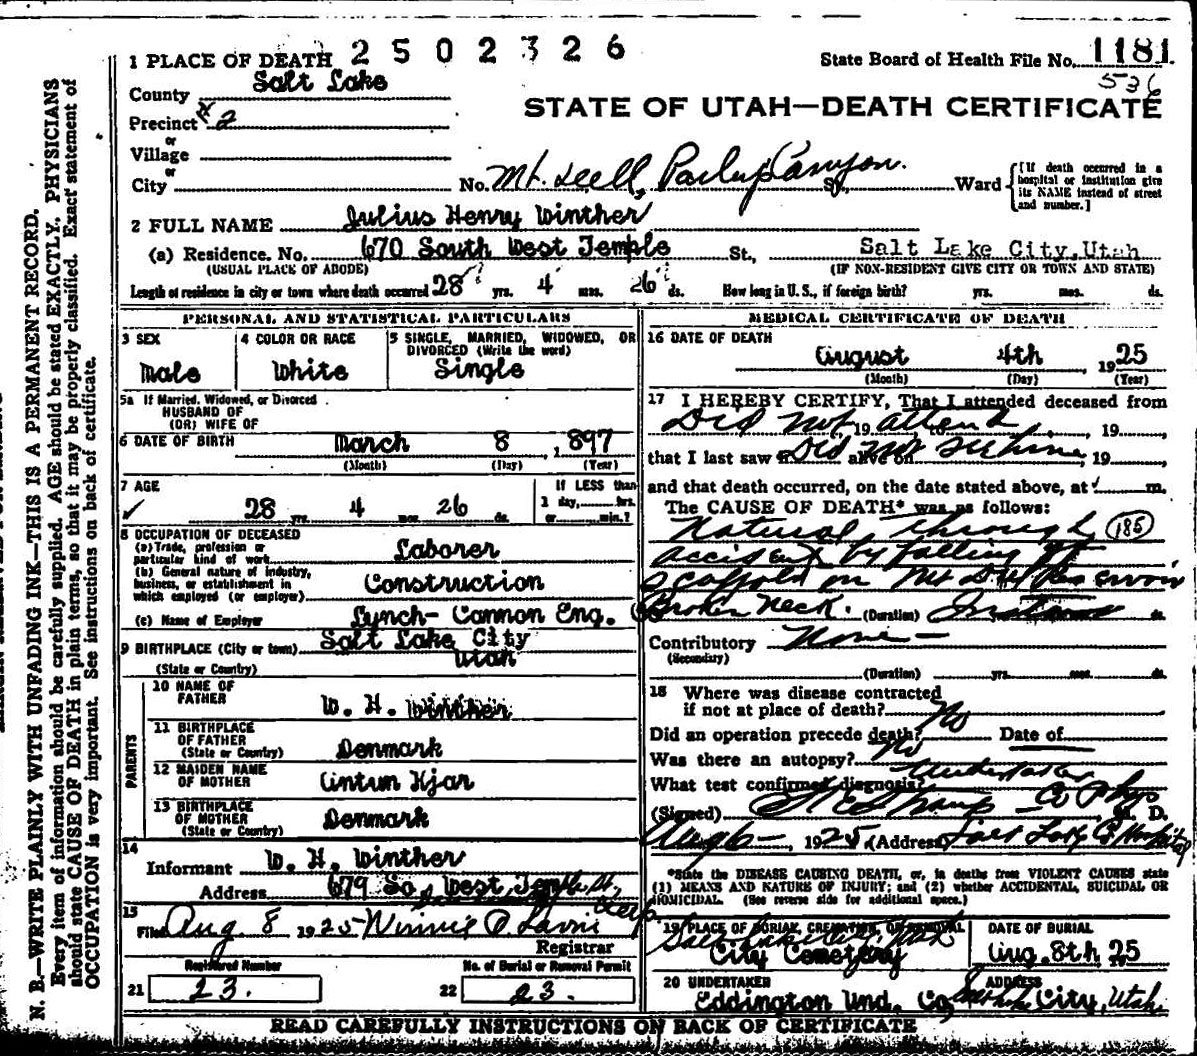 2502326
1 PLACE OF DEATH
State Board of Health File No. 1181
536
County Salt Lake
STATE OF UTAH—DEATH CERTIFICATE
Precinct #2
or
Village
or
City No. Mt. Dell, Parleys Canyon. St. Ward
[If death occurred in a hospital or institution give its NAME instead of street and number.]
2 FULL NAME Julius Henry Winther
(a) Residence. No. 670 South West Temple St., Salt Lake City, Utah
(USUAL PLACE OF ABODE) (IF NON-RESIDENT GIVE CITY OR TOWN AND STATE)
Length of residence in city or town where death occurred 28 yrs. 4 mos. 26 ds. How long in U. S., if foreign birth? yrs. mos. ds.
PERSONAL AND STATISTICAL PARTICULARS
3 SEX
Male
4 COLOR OR RACE
White
5 SINGLE, MARRIED, WIDOWED, OR
DIVORCED (Write the word)
Single
5a If Married, Widowed, or Divorced
HUSBAND OF
(OR) WIFE OF
6 DATE OF BIRTH March 8, 1897
(Month) (Day) (Year)
7 AGE
28 yrs. 4 mos. 26 ds.
If LESS than
1 day, hrs.
or min.?
8 OCCUPATION OF DECEASED
(a) Trade, profession or
particular kind of work Laborer
(b) General nature of industry,
business, or establishment in
which employed (or employer) Construction
(c) Name of Employer Lynch-Cannon Eng. Co
9 BIRTHPLACE (City or town) Salt Lake City
(State or Country) Utah
PARENTS
10 NAME OF
FATHER W. H. Winther
11 BIRTHPLACE
OF FATHER
(State or Country) Denmark
12 MAIDEN NAME
OF MOTHER Kjar
13 BIRTHPLACE
OF MOTHER
(State or Country) Denmark
14
Informant W. H. Winther
Address 679 So. West Temple St.
15
Filed Aug. 8 1925 Winnie
Registrar
Registered Number
21 23.
No. of Burial or Removal Permit
22 23.
MEDICAL CERTIFICATE OF DEATH
16 DATE OF DEATH
August 4th 1925
(Month) (Day) (Year)
17 I HEREBY CERTIFY, That I attended deceased from
Did not, 19 attend, 19
that I last saw h Did alive on not see him, 19
and that death occurred, on the date stated above, at m.
The CAUSE OF DEATH* was as follows:
Natural, through 185
accident by falling off
scaffold on Mt Dell Reservoir
Broken Neck. (Duration) ds.
Contributory None
(Secondary)
(Duration) yrs. mos. ds.
18 Where was disease contracted
if not at place of death?
Did an operation precede death? No Date of
Was there an autopsy? No
What test confirmed diagnosis? Undertaker
(Signed) Co Phys M. D.
Aug 6 1925 (Address) Salt Lake G. Hospital
*State the DISEASE CAUSING DEATH, or, in deaths from VIOLENT CAUSES state
(1) MEANS AND NATURE OF INJURY; and (2) whether ACCIDENTAL, SUICIDAL OR
HOMICIDAL. (See reverse side for additional space.)
19 PLACE OF BURIAL, CREMATION, OR REMOVAL
Salt Lake City, Utah
City Cemetery
DATE OF BURIAL
Aug. 8th 25
20 UNDERTAKER
Eddington Und. Co.
ADDRESS
Salt Lake City, Utah
READ CAREFULLY INSTRUCTIONS ON BACK OF CERTIFICATE
N. B.—WRITE PLAINLY WITH UNFADING INK—THIS IS A PERMANENT RECORD.
Every item of information should be carefully supplied. AGE should be stated EXACTLY. PHYSICIANS
should state CAUSE OF DEATH in plain terms, so that it may be properly classified. Exact statement of
OCCUPATION is very important. See instructions on back of certificate.